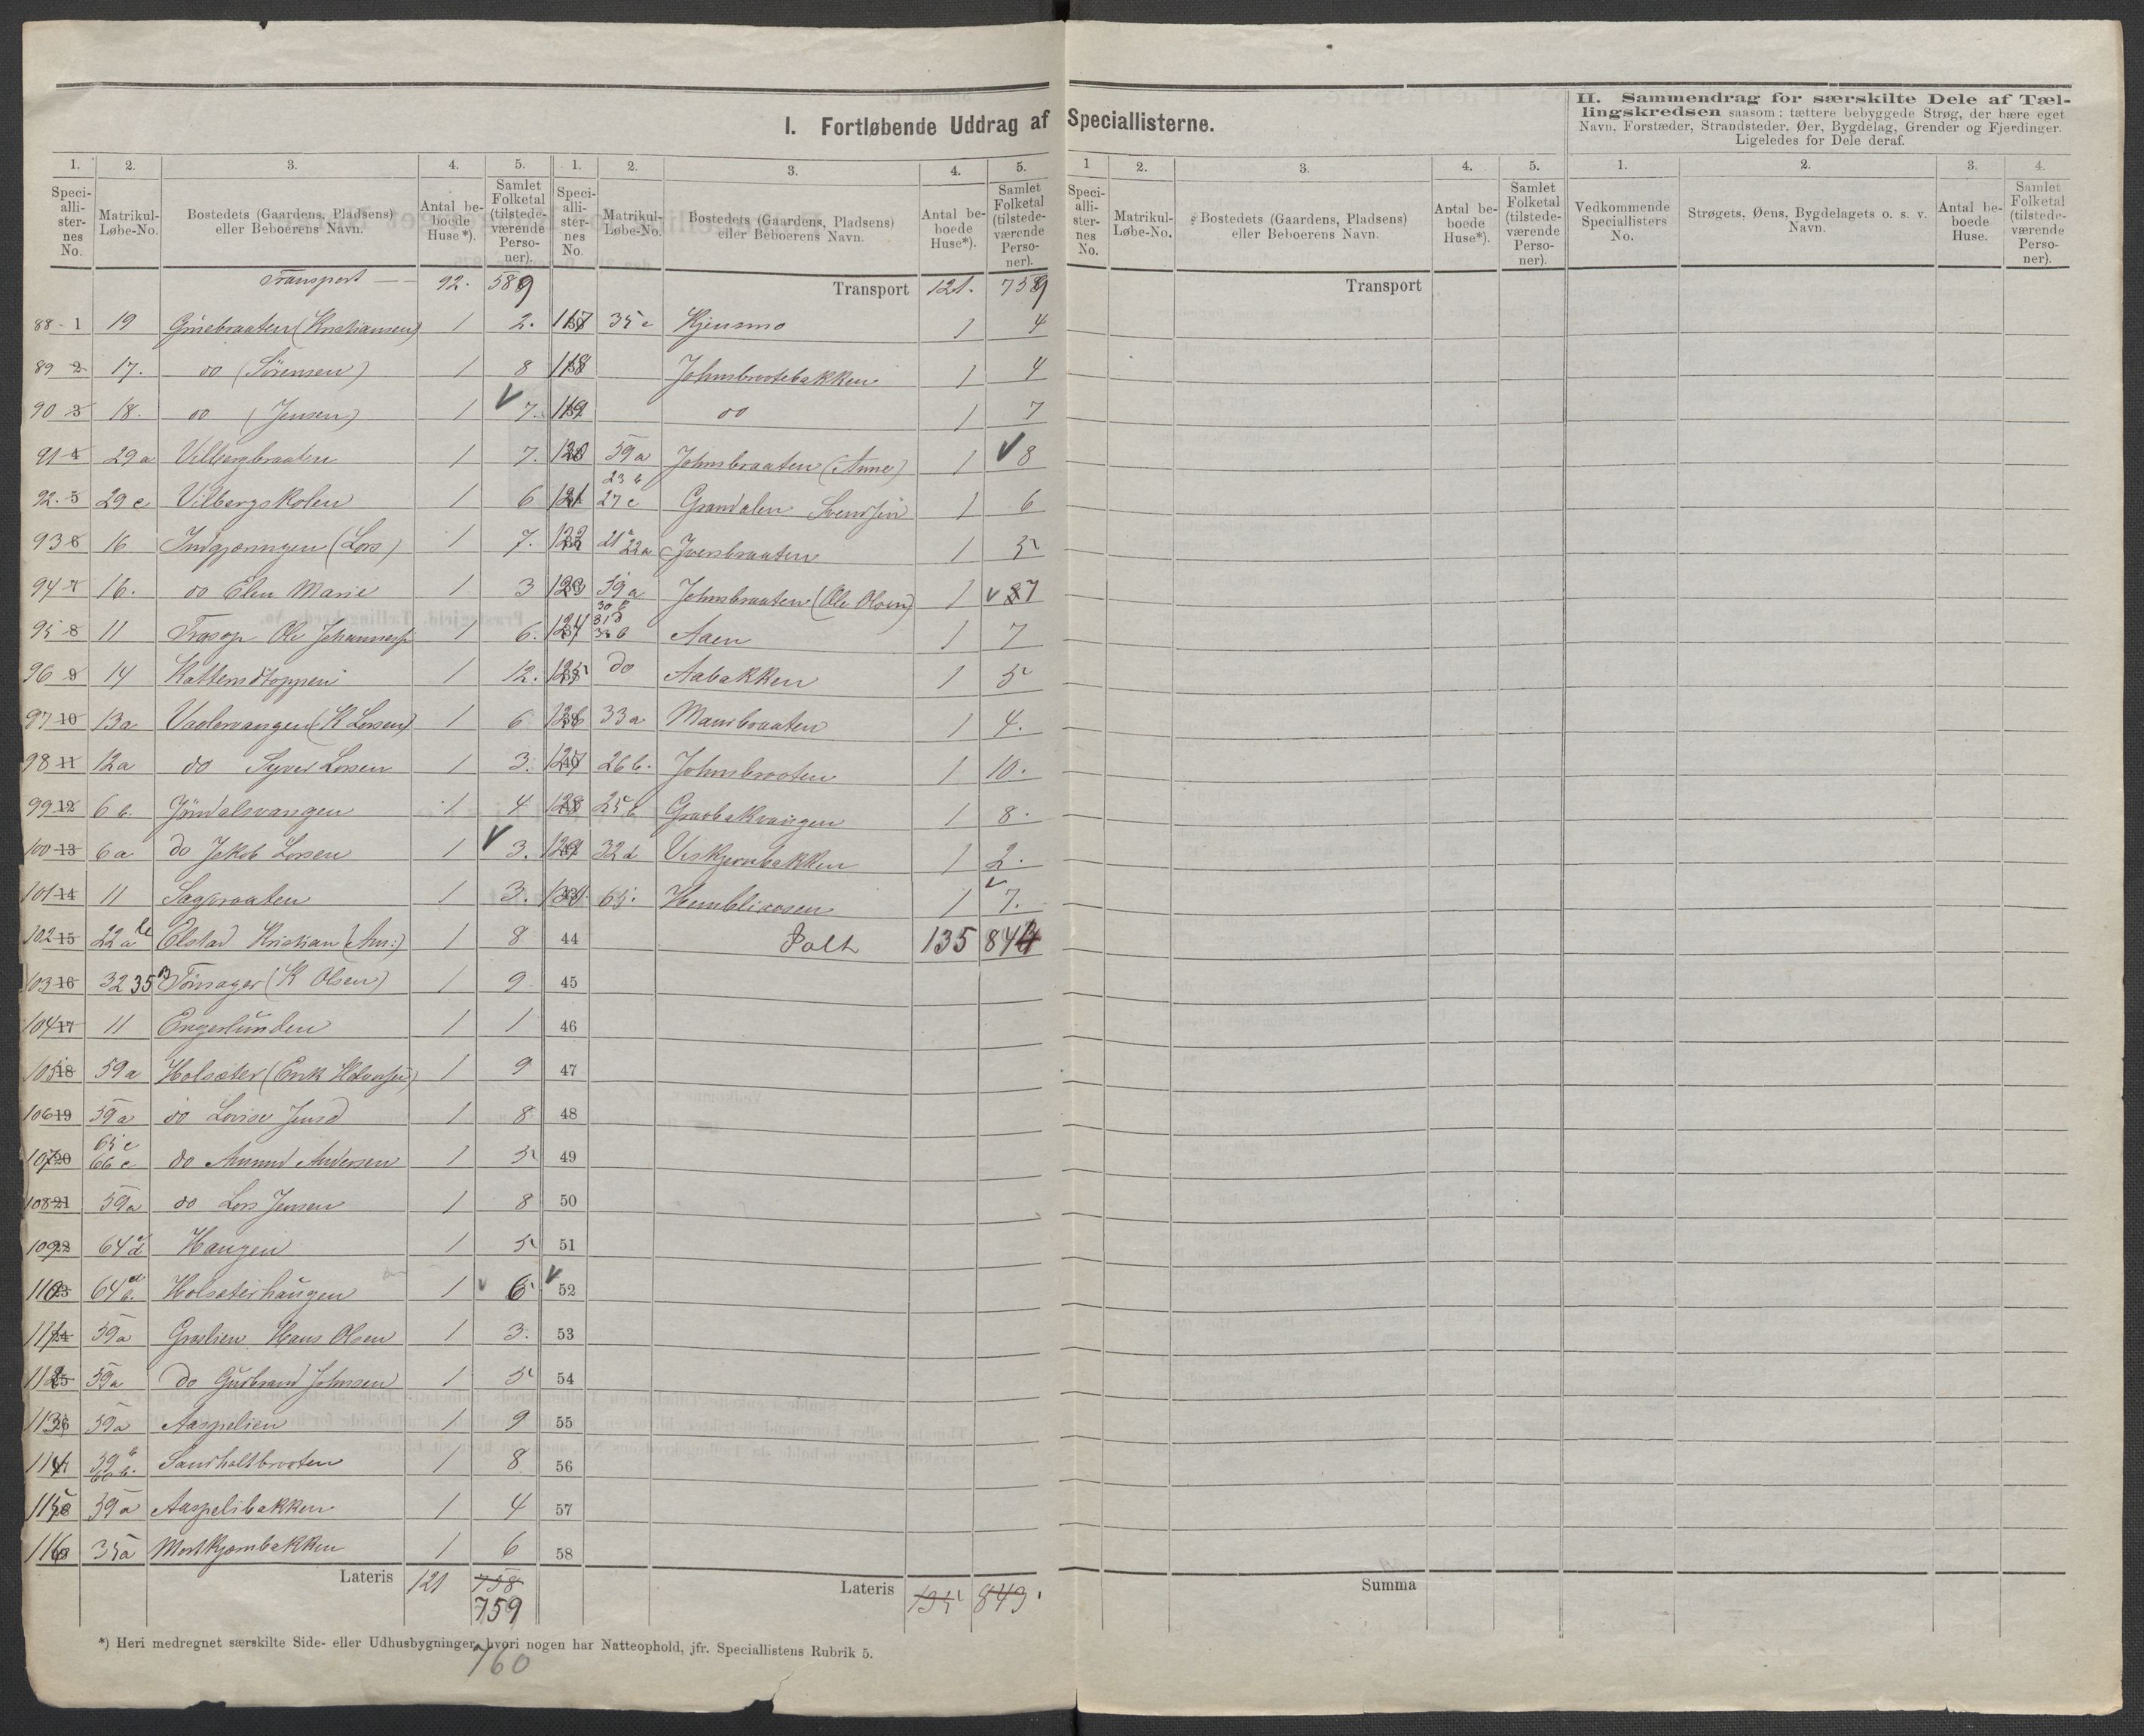 I. Fortløbende Uddrag af Speciallisterne.
II. Sammendrag for særskilte Dele af Tæl-
lingskredsen saasom: tættere bebyggede Strøg, der bære eget
Navn, Forstæder, Strandsteder, Øer, Bygdelag, Grender og Fjerdinger.
Ligeledes for Dele deraf.
1. 2. 3. 4. 5. 1. 2. 3. 4. 5. 1 2. 3. 4. 5. 1. 2. 3. 4.
Speci-alli-ster-nes No. Matrikul-Løbe-No. Bostedets (Gaardens, Pladsens) eller Beboerens Navn. Antal be-boede Huse*). Samlet Folketal (tilstede-værende Perso-ner).
Speci-alli-ster-nes No. Matrikul-Løbe-No. Bostedets (Gaardens, Pladsens) eller Beboerens Navn. Antal be-boede Huse*). Samlet Folketal (tilstede-værende Perso-ner).
Speci-alli-ster-nes No. Matrikul-Løbe-No. Bostedets (Gaardens, Pladsens) eller Beboerens Navn. Antal be-boede Huse*). Samlet Folketal (tilstede-værende Perso-ner).
Vedkommende Speciallisters No. Strøgets, Øens, Bygdelagets o. s. v. Navn. Antal be-boede Huse. Samlet Folketal (tilstede-værende Perso-ner).
Transport 92. 589
88 1 19 Grinebraaten (Kristiansen) 1 2.
89 2 17. do (Sörensen) 1 8
90 3 18. do (Jensen) 1 7.
91 4 29a Vilbergbraaten 1 7.
92. 5 29c Vilbergskolen 1 6
93 6 16 Indgjæringen (Lars) 1 7.
94 7 16. do Elen Marie 1 3
95 8 11 Træsop Ole Johanness 1 6.
96 9 14 Kattemdtoppen 1 12.
97 10 13a Vaalervangen (K Larsen) 1 6
98 11 12a do Syver Larsen 1 3.
99 12 6b. Jöndalsvangen 1 4
100 13 6a do Jakob Larsen 1 3.
101 14 11 Sagbraaten 1 3.
102 15 22a Elstad Kristian (Am:) 1 8
103 16 32 35 Tömager (K Olsen) 1 9
104 17 11 Engerlunden 1 1
105 18 59a Holsæter (Erik Halvorsen) 1 9
106 19 59a do Lovise Jensd 1 8
107 20 65c 66c do Amund Andersen 1 5
108 21 59a do Lars Jensen 1 8
109 22 64d Haugen 1 5
110 23 64b. Holsæterhaugen 1 6
111 24 59a Graslien Hans Olsen 1 3.
112 25 59a do Gudbrand Johnsen 1 5
113 26 59a Aaspelien 1 9
114 59 60b. Sandholtbraaten 1 8
115 59a Aaspelibakken 1 4
116 35a Mortkjærnbakken 1 6
Lateris 121 758
759
760
Transport 121. 759
117 35c Kjensmo 1 4
118 Johnsbraatebakken 1 4
119 do 1 7
120 59a Johnsbraaten (Anne) 1 8
121 23b 27c Grandalen Svendsen 1 6
122 21 22a Iversbraaten 1 5
123 59a Johnsbraaten (Ole Olsen) 1 7
124 30b 31d Aaen 1 7
125 do Aabakken 1 5
126 33a Mausbraaten 1 4.
127 26b. Johnsbraaten 1 10.
128 25b Grasbakvangen 1 8.
129 32d Viskjernbakken 1 2.
130 65. Humbliaasen 1 7.
44 Salt 135 844
45
46
47
48
49
50
51
52
53
54
55
56
57
58
Lateris 135 843
Transport
Summa
*) Heri medregnet særskilte Side- eller Udhusbygninger, hvori nogen har Natteophold, jfr. Speciallistens Rubrik 5.